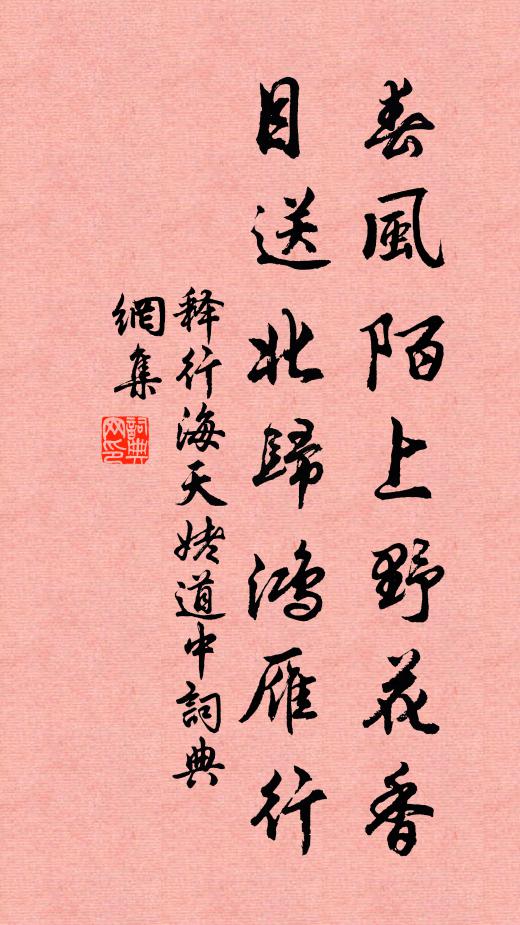 春風陌上野花香
目送北歸鴻雁行
释行海天姥道中詞典
網集
詞典
网印